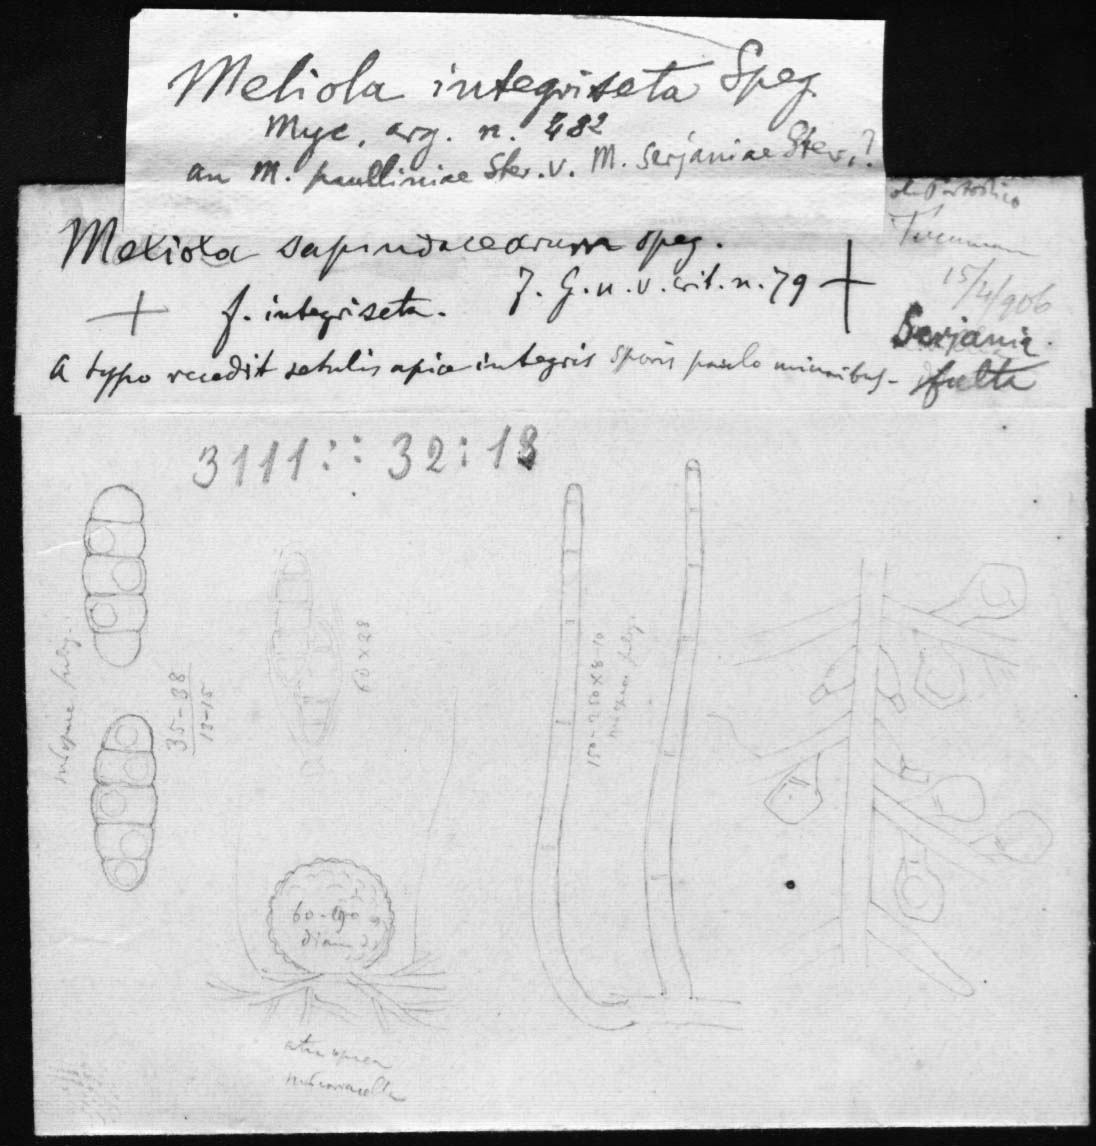 Meliola integriseta Speg.
Myc. arg. n. 482
an M. paulliniae Stev. v. M. serjaniae Stev.?
Tucuman
15/4/906
Meliola sapindacearum speg.
F. G. n. v. crit. n. 79
f. integriseta.
Serjania
fulta
a typo recedit setulis apice integris sporis paulo minoribus-
3111:: 32:13
35-38
13-15
60 x 28
150-250 x 8-10
60-190
diam
atra opaca